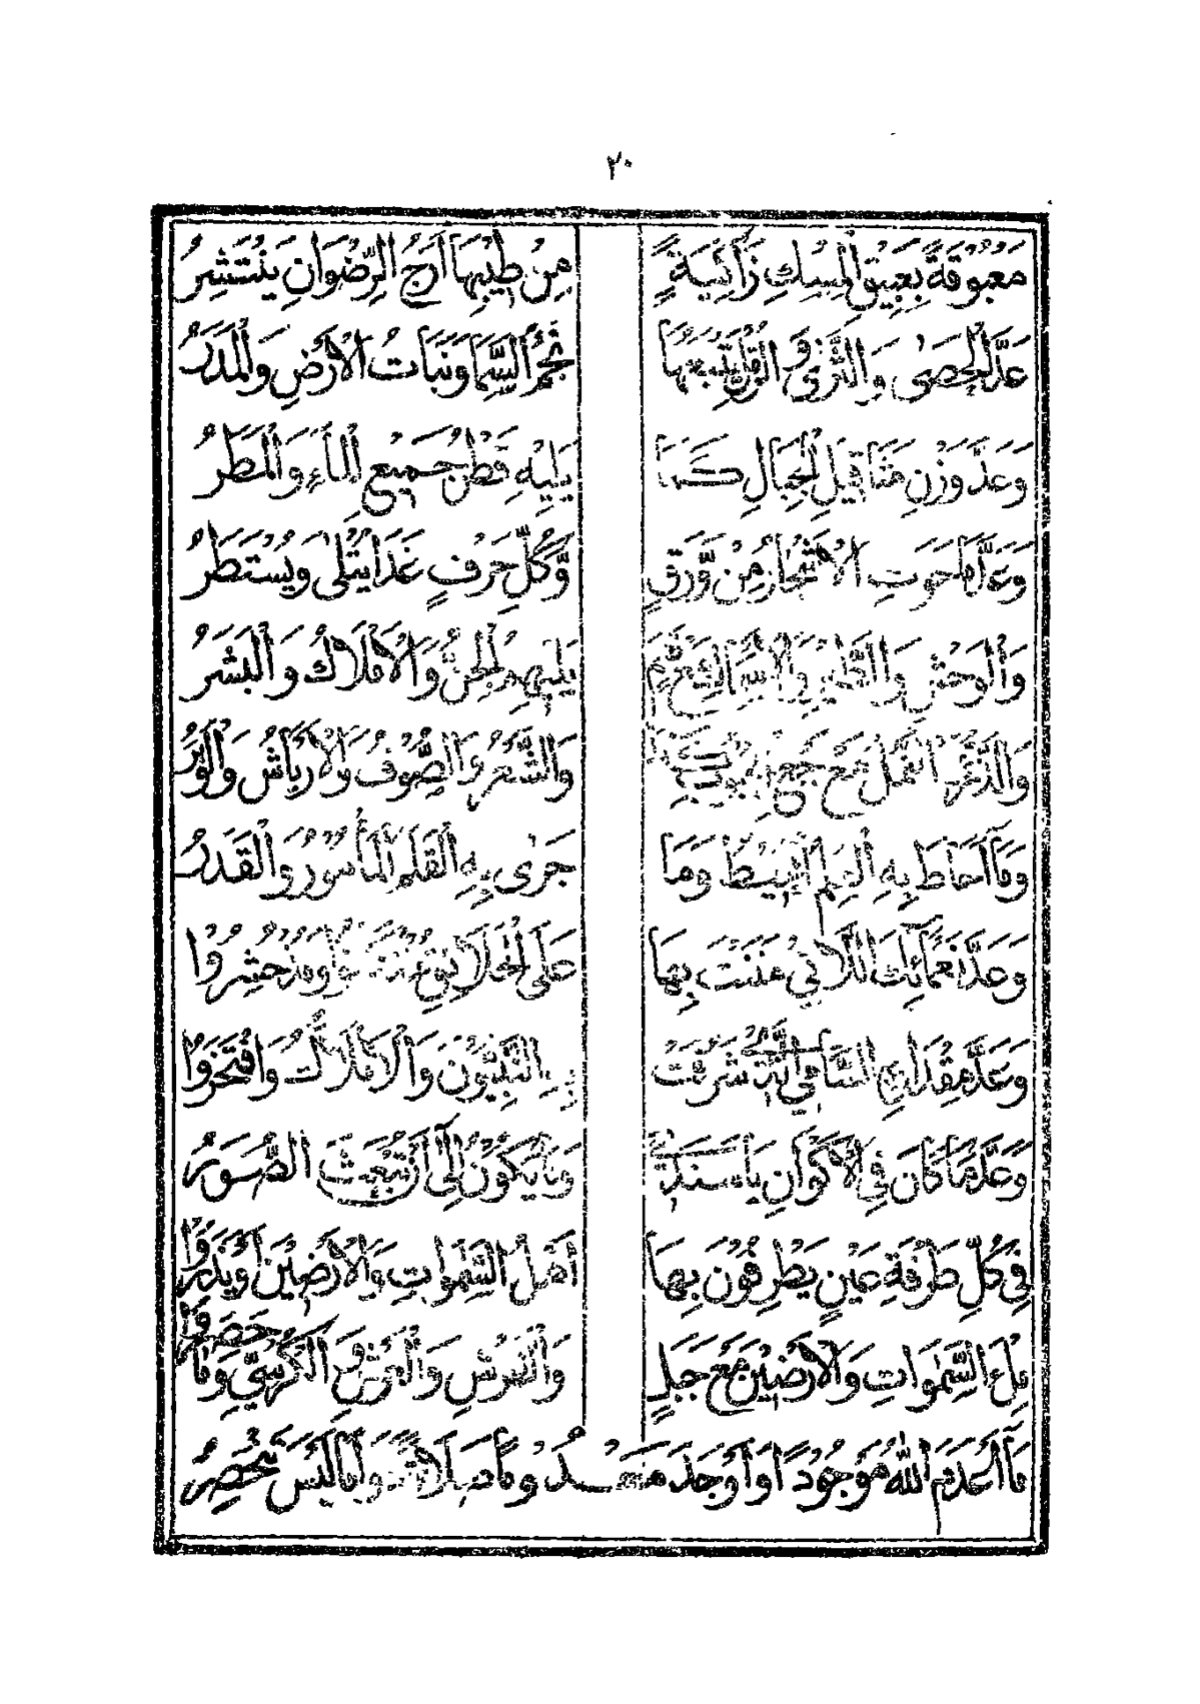 ٢٠
مَعْبُوقَةً بِعَبِيقِ الْمِسْكِ زَاكِيَةً مِنْ طِيبِهَا أَرَجُ الرِّضْوَانِ يَنْتَشِرُ
عَدَّ الْحَصٰى وَالثَّرٰى وَالرَّمْلِ يَتْبَعُهَا نَجْمُ السَّمَا وَنَبَاتُ الْأَرْضِ وَالْمَدَرُ
وَعَدَّ وَزْنِ مَثَاقِيلِ الْجِبَالِ كَمَا يَلِيهِ قَطْرُ جَمِيعِ الْمَاءِ وَالْمَطَرُ
وَعَدَّ مَا حَوَتِ الْأَشْجَارُ مِنْ وَّرَقٍ وَّكُلِّ حَرْفٍ غَدَا يُتْلٰى وَيُسْتَطَرُ
وَالْوَحْشِ وَالطَّيْرِ وَالْأَسْمَاكِ مَعْ نَعَمٍ يَلِيهِمُ الْجِنُّ وَالْأَمْلَاكُ وَالْبَشَرُ
وَالذَّرُّ وَالنَّمْلُ مَعْ جَمْعِ الْحُبُوبِ كَذَا وَالشَّعْرُ وَالصُّوفُ وَالْأَرْيَاشُ وَالْوَبَرُ
وَمَا أَحَاطَ بِهِ الْعِلْمُ الْمُحِيطُ وَمَا جَرٰى بِهِ الْقَلَمُ الْمَأْمُورُ وَالْقَدَرُ
وَعَدَّ نَعْمَائِكَ اللَّاتِي مَنَنْتَ بِهَا عَلَى الْخَلَائِقِ مُذْ كَانُوا وَمُذْ حُشِرُوا
وَعَدَّ مِقْدَارِهِ السَّامِي الَّذِي شَرُفَتْ بِهِ النَّبِيُّونَ وَالْأَمْلَاكُ وَافْتَخَرُوا
وَعَدَّ مَا كَانَ فِي الْأَكْوَانِ يَا سَنَدِي وَمَا يَكُونُ إِلٰى أَنْ تُبْعَثَ الصُّوَرُ
فِي كُلِّ طَرْفَةِ عَيْنٍ يَطْرِفُونَ بِهَا أَهْلُ السَّمٰوَاتِ وَالْأَرْضِينَ أَوْ يَذَرُوا
مِلْءَ السَّمٰوَاتِ وَالْأَرْضِينَ مَعْ جَبَلٍ وَالْفَرْشِ وَالْعَرْشِ وَالْكُرْسِيِّ وَمَا حَصَرُوا
مَا أَعْدَمَ اللّٰهُ مَوْجُودًا وَأَوْجَدَ مَعْدُومًا صَلَاةً دَوَامًا لَيْسَ تَنْحَصِرُ